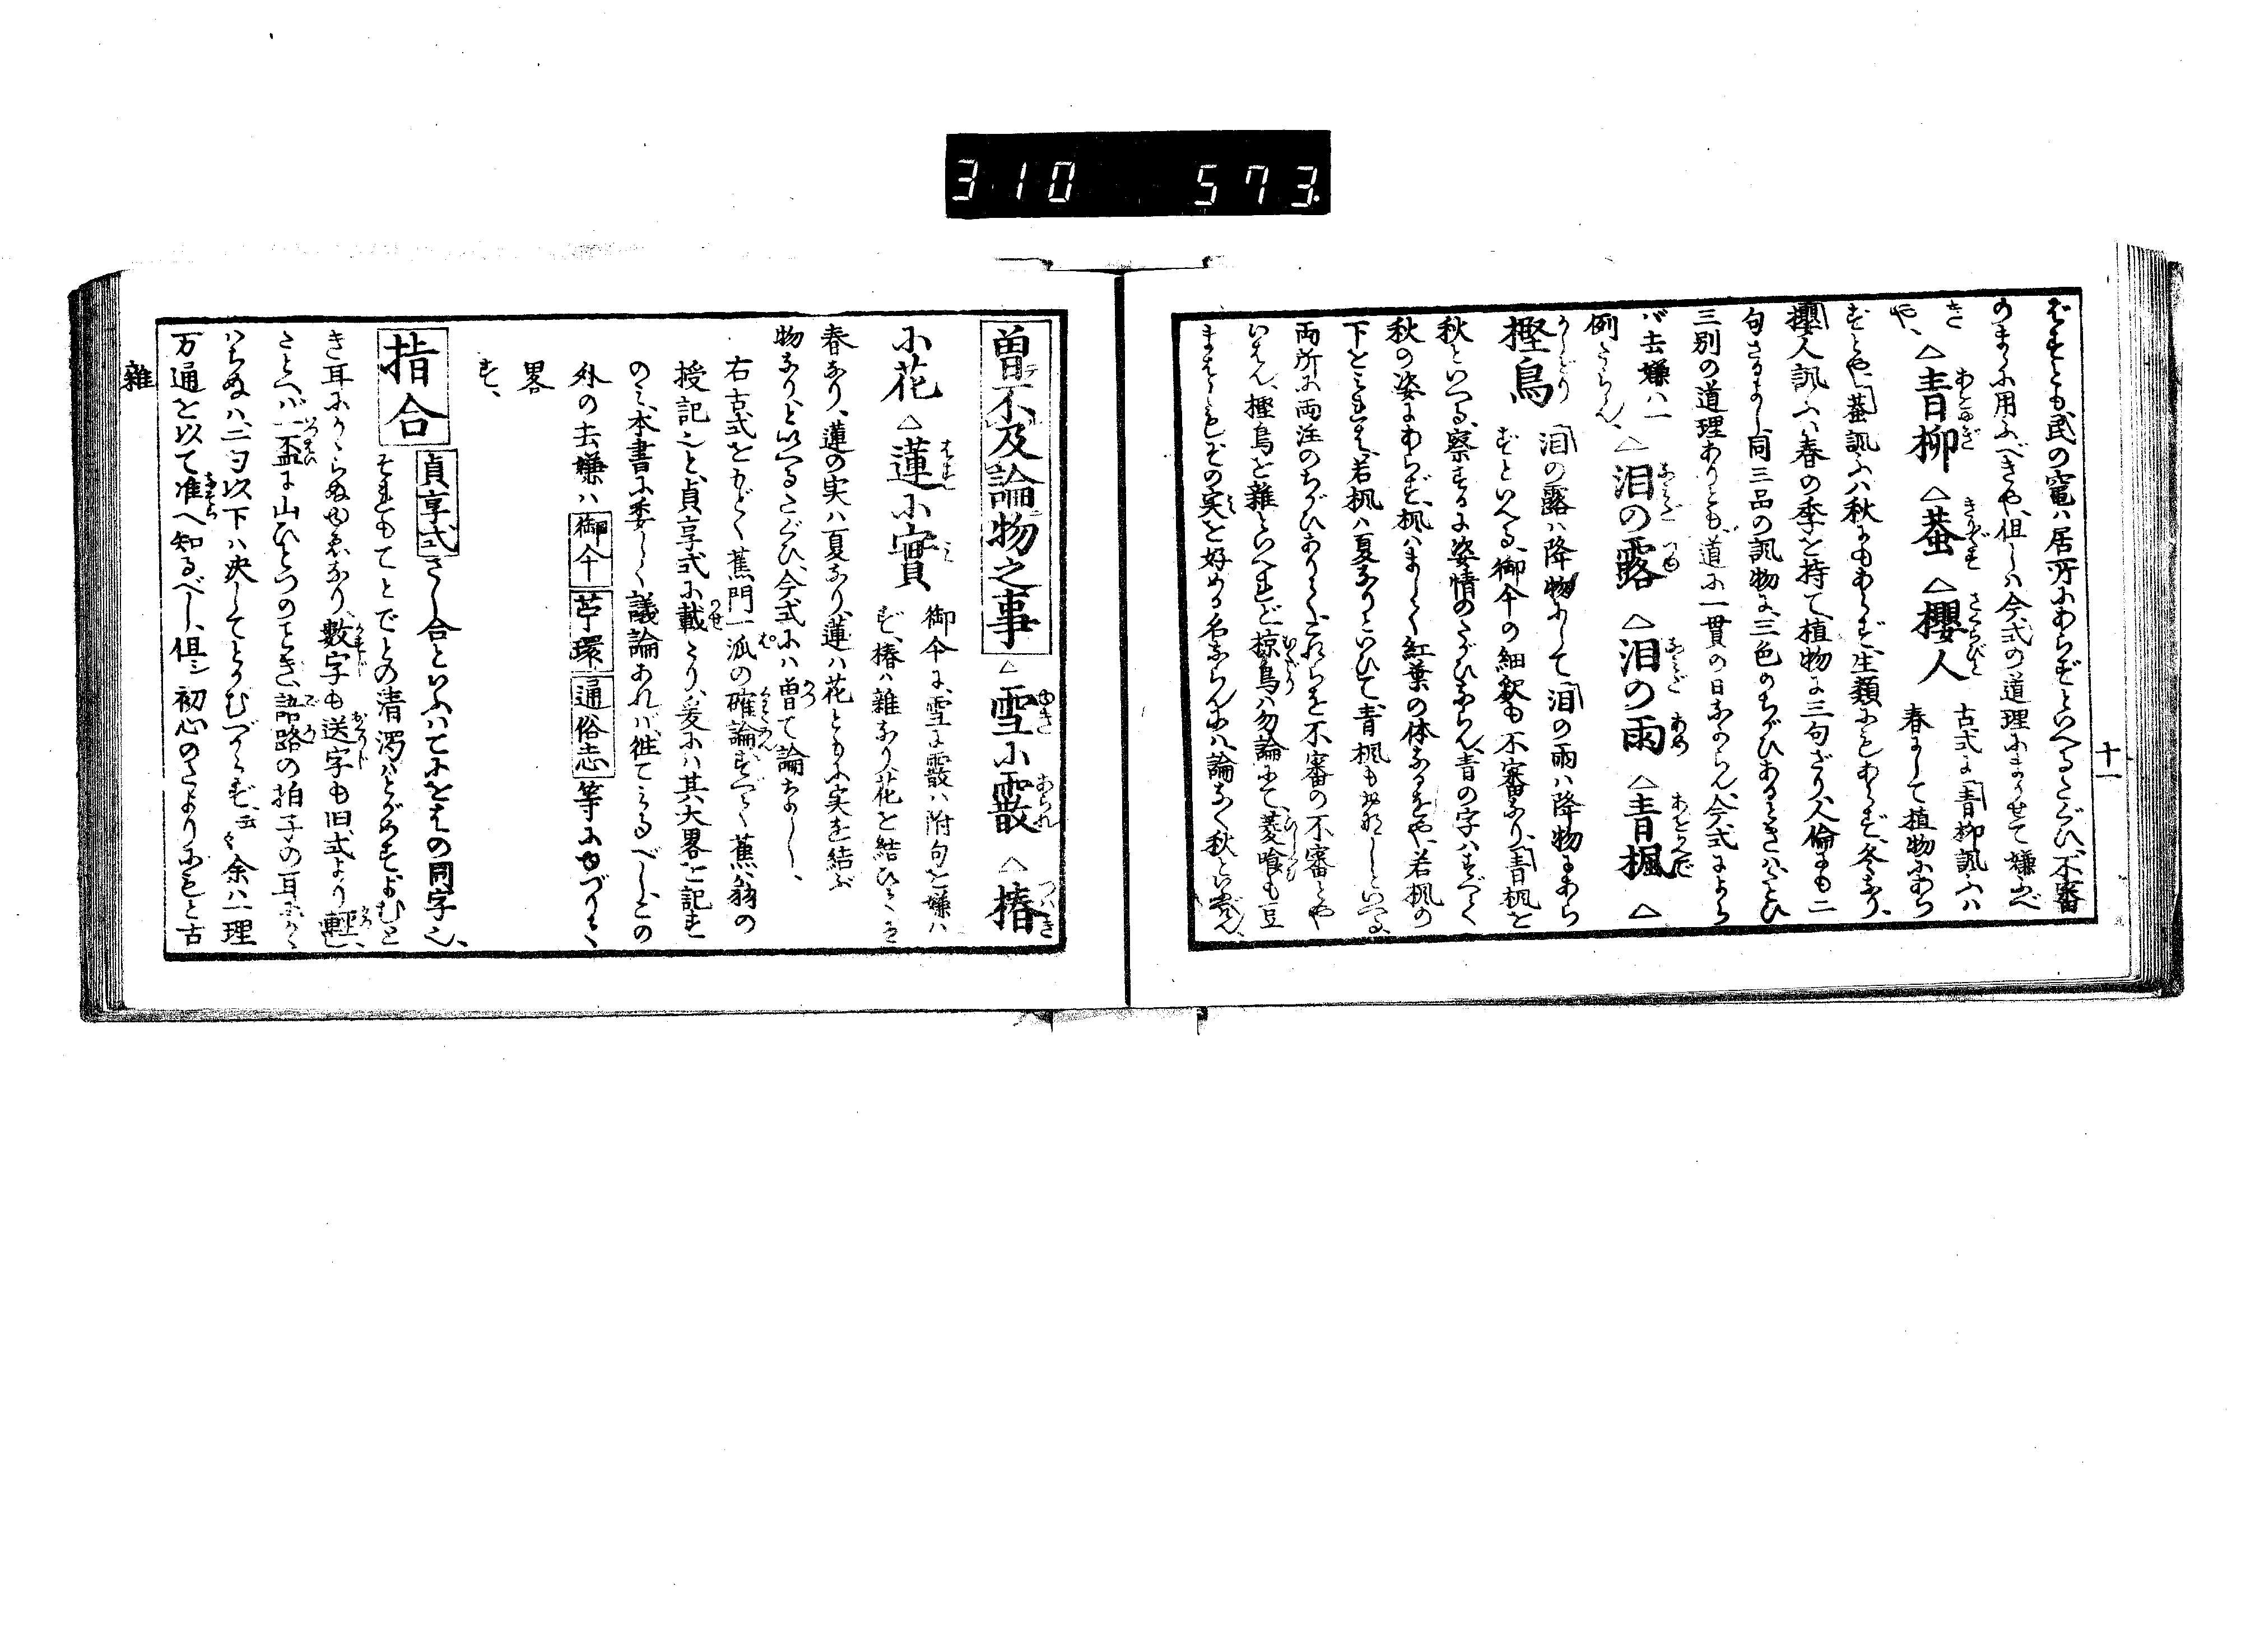 310 573.
十一
ばすとも、民の竃ハ居所にあらずといへるたぐひ、不審
のまゝに用ふべきや、但しハ今式の道理にまかせて嫌ふべ
きや、△青柳 △蚕 △櫻人
古式に青柳諷ふハ
春にして植物にあら
ずとや、蚕諷ふハ秋にもあらず、生類にもあらず、冬なり、
櫻人諷ふハ春の季を持て、植物に三句ざり、人倫にも二
句さるよし、同三品の諷物に、三色のちがひあるときハ、たとひ
三別の道理ありとも、道に一貫の日なからん、今式によら
バ去嫌ハ一
例たらん、△泪の露 △泪の雨 △青楓 △
樫鳥
泪の露ハ降物にして、泪の雨ハ降物にあら
ずといへる、御傘の細釈も不審なり、青楓を
秋といへる、察するに姿情のたがひならん、青の字ハすべて
秋の姿にあらず、楓ハまして紅葉の体なるをや、若楓の
下をミれば、若楓ハ夏なりといひて、青楓も如那しといへる、
両所に両注のちがひありて、これらを不審の不審とや
いはん、樫鳥を雑といへれど、椋鳥ハ勿論にて、菱喰も豆
まはしもその実を好める名ならんにハ、論なく秋といはん、
曽不及論物之事 △雪に霰 △椿
に花 △蓮に實
御傘に、雪に霰ハ附句を嫌ハ
ず、椿ハ雑なり、花を結ひてハ
春なり、蓮の実ハ夏なり、蓮ハ花ともに実を結ぶ
物なり、といへるたぐひ、今式にハ曽て論なし、
右古式をもどく蕉門一派の確論、すべて蕉翁の
授記也と、貞享式に載たり、爰にハ其大畧を記す
のミ、本書に委しく議論あれバ、往てミるべし、この
外の去嫌ハ御傘苧環通俗志等にゆづりて
畧
す、
指合 貞享式さし合といふハてにをはの同字也、
それもてとでとの清濁ハとがめず、よむと
き耳にかゝらぬゆゑなり、数字も送字も旧式より軽し、
たとへバ一盃に山ひとつのとき、語路の拍子の耳にかゝ
ハらぬハ、二句以下ハ決してとがむべからず、云々、余ハ一理
万通を以て准へ知るべし、但シ初心のたよりにもと古
雑